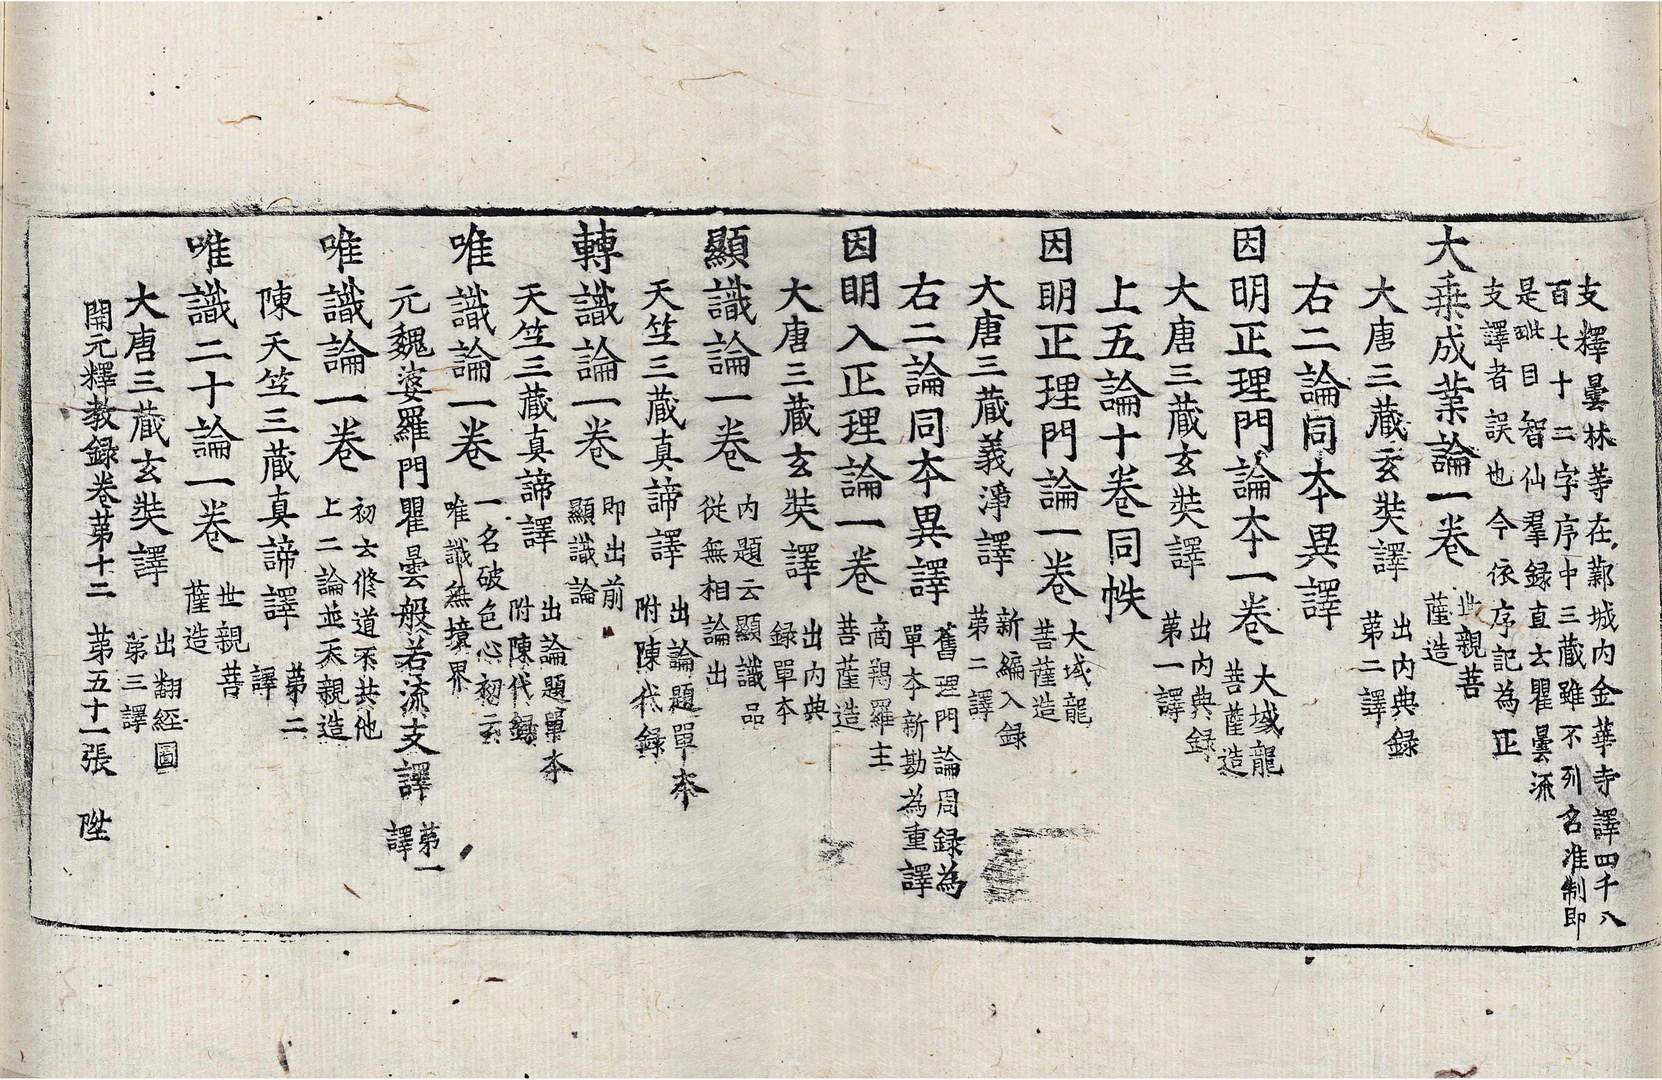 支釋曇林等在鄴城内金華寺譯四千八
百七十二字序中三藏雖不列名准制即
是毗目智仙羣録直云瞿曇流
支譯者誤也今依序記為正
大乗成業論一卷 世親菩薩造
大唐三藏玄奘譯 出内典録第二譯
右二論同本異譯
因明正理門論本一卷 大域龍菩薩造
大唐三藏玄奘譯 出内典録第一譯
上五論十卷同帙
因明正理門論一卷 大域龍菩薩造
大唐三藏義淨譯 新編入録第二譯
右二論同本異譯 舊理門論周録為單本新勘為重譯
因明入正理論一卷 商羯羅主菩薩造
大唐三藏玄奘譯 出内典録單本
顯識論一卷 内題云顯識品從無相論出
天竺三藏真諦譯 出論題單本附陳代録
轉識論一卷 即出前顯識論
天竺三藏真諦譯 出論題單本附陳代録
唯識論一卷 一名破色心初云唯識無境界
元魏婆羅門瞿曇般若流支譯 第一譯
唯識論一卷 初云修道不共他上二論並天親造
陳天竺三藏真諦譯 第二譯
唯識二十論一卷 世親菩薩造
大唐三藏玄奘譯 出翻經圖第三譯
開元釋教録卷第十二 第五十一張 陞